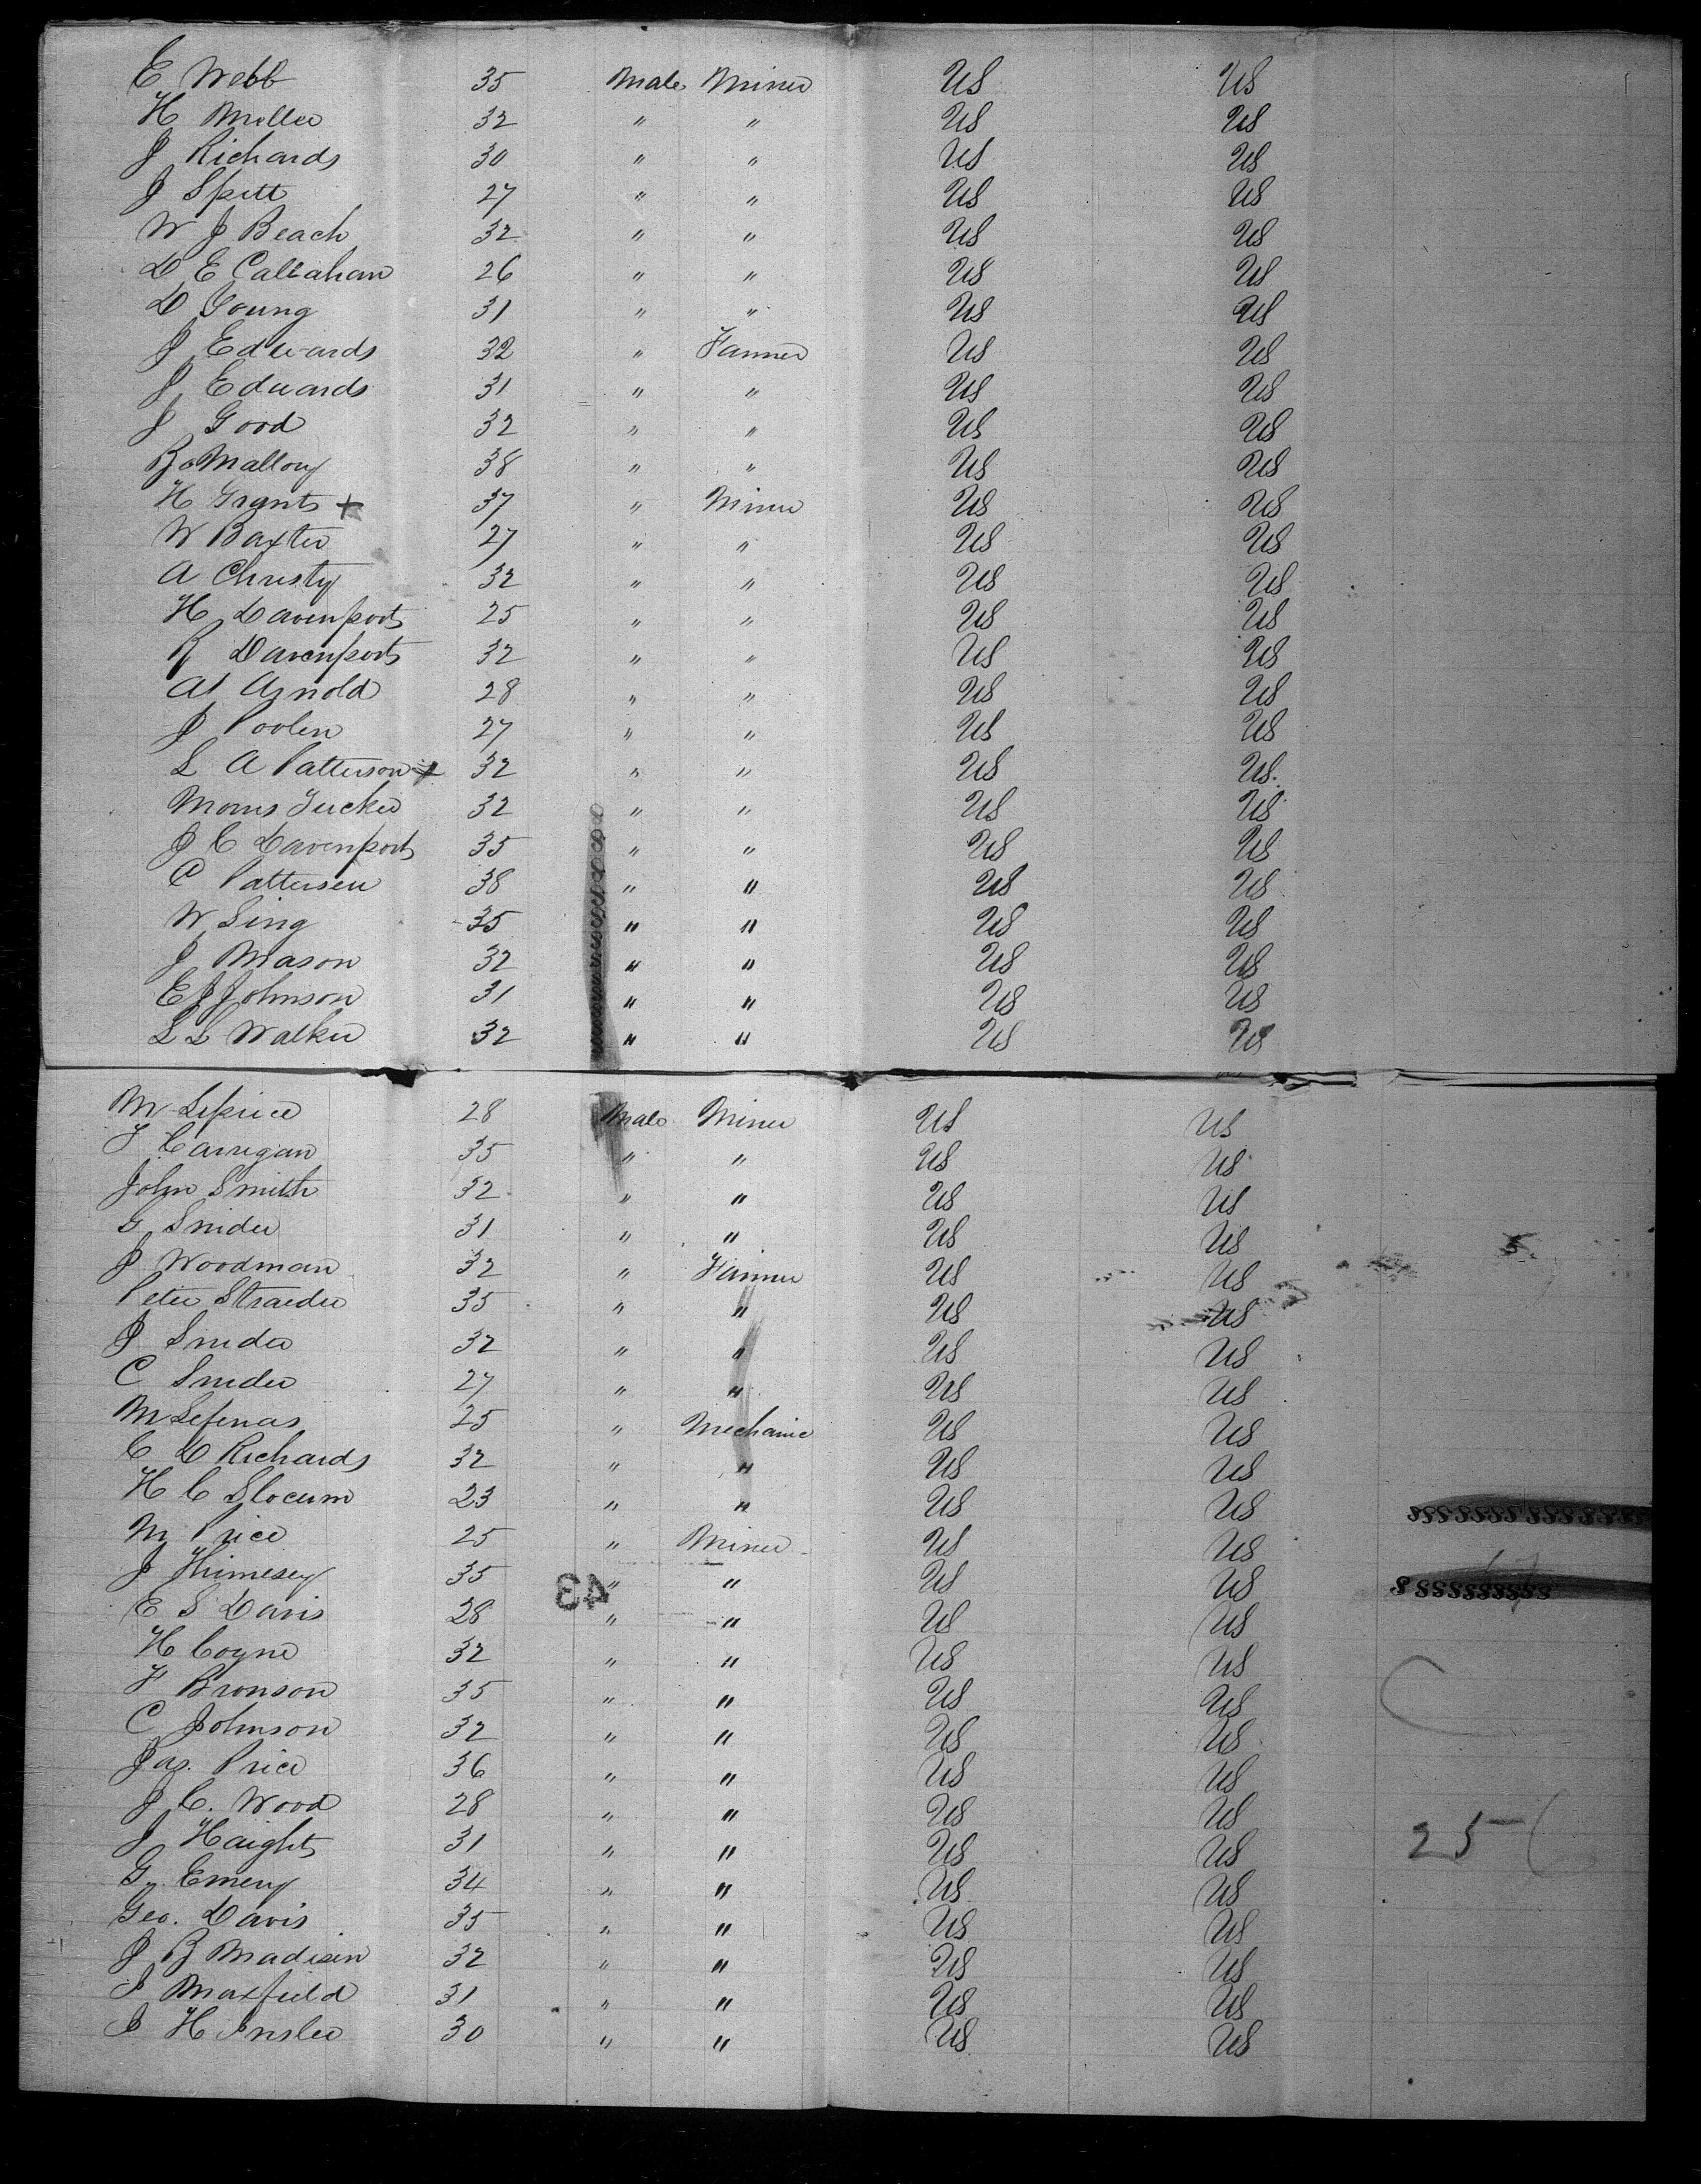 E Webb 35 Male Miner US US
H Miller 32 " " US US
J Richards 30 " " US US
J Spitt 27 " " US US
W J Beach 32 " " US US
D E Callahan 26 " " US US
D Young 31 " " US US
J Edwards 32 " Farmer US US
J Edwards 31 " " US US
J Good 32 " " US US
B Mallory 38 " " US US
H Grant + 37 " Miner US US
W Baxter 27 " " US US
A Christy 32 " " US US
H Davenport 25 " " US US
R Davenport 32 " " US US
Al Arnold 28 " " US US
J Poolen 27 " " US US
L A Patterson + 32 " " US US.
Morris Tucker 32 " " US US
J C Davenport 35 " " US US
C Patterson 38 " " US US
W Sing 35 " " US US
J Mason 32 " " US US
E J Johnson 31 " " US US
L L Walker 32 " " US US
M 28 Male Miner US US
T Carrigan 35 " " US US
John Smith 32 " " US US
G Snider 31 " " US US
J Woodman 32 " Farmer US US
Peter Straeder 35 " " US US
J Snider 32 " " US US
C Snider 27 " " US US
M 25 " Mechanic US US
C D Richards 32 " " US US
H C Slocum 23 " " US US
M Price 25 " Miner US US
J 35 " " US US
43
E S Davis 28 " " US US
H Coyne 32 " " US US
F Bronson 35 " " US US
C Johnson 32 " " US US
Jas. Price 36 " " US US
J C. Wood 28 " " US US
J Haight 31 " " US US 25
G. Emery 34 " " US US
Geo. Davis 35 " " US US
J B Madison 32 " " US US
J Maxfield 31 " " US US
J H Insler 30 " " US US